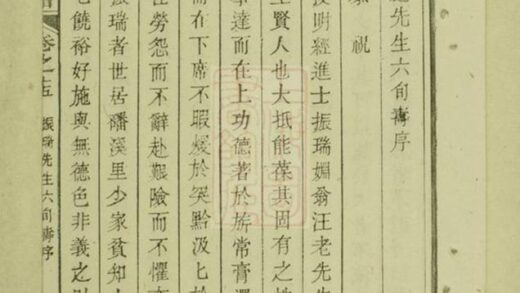 先生六旬壽序
祝
授明經進士振瑞姻翁汪老先
賢人也大抵能葆其固有之性
達而在上功德著於旂常膏澤
而在下席不暇煖於突黔汲匕於
任勞怨而不辭赴艱險而不懼
振瑞者世居磻溪里少家貧知
饒裕好施與無德色非義之
卷之五
振瑞先生六旬壽序